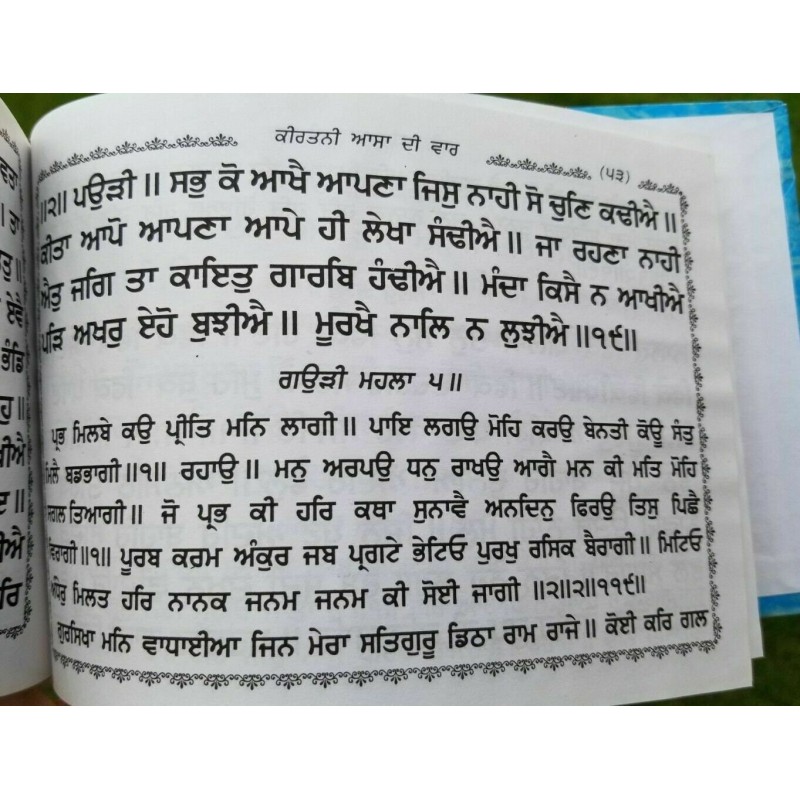 ਕੀਰਤਨੀ ਆਸਾ ਦੀ ਵਾਰ
(੫੩)
॥੨॥ ਪਉੜੀ ॥ ਸਭੁ ਕੋ ਆਖੈ ਆਪਣਾ ਜਿਸੁ ਨਾਹੀ ਸੋ ਚੁਣਿ ਕਢੀਐ ॥
ਕੀਤਾ ਆਪੋ ਆਪਣਾ ਆਪੇ ਹੀ ਲੇਖਾ ਸੰਢੀਐ ॥ ਜਾ ਰਹਣਾ ਨਾਹੀ
ਐਤੁ ਜਗਿ ਤਾ ਕਾਇਤੁ ਗਾਰਬਿ ਹੰਢੀਐ ॥ ਮੰਦਾ ਕਿਸੈ ਨ ਆਖੀਐ
ਪੜਿ ਅਖਰੁ ਏਹੋ ਬੁਝੀਐ ॥ ਮੂਰਖੈ ਨਾਲਿ ਨ ਲੁਝੀਐ ॥੧੯॥
ਗਉੜੀ ਮਹਲਾ ੫॥
ਪ੍ਰਭ ਮਿਲਬੇ ਕਉ ਪ੍ਰੀਤਿ ਮਨਿ ਲਾਗੀ ॥ ਪਾਇ ਲਗਉ ਮੋਹਿ ਕਰਉ ਬੇਨਤੀ ਕੋਊ ਸੰਤੁ
ਮਿਲੈ ਬਡਭਾਗੀ ॥੧॥ ਰਹਾਉ ॥ ਮਨੁ ਅਰਪਉ ਧਨੁ ਰਾਖਉ ਆਗੈ ਮਨ ਕੀ ਮਤਿ ਮੋਹਿ
ਸਗਲ ਤਿਆਗੀ ॥ ਜੋ ਪ੍ਰਭ ਕੀ ਹਰਿ ਕਥਾ ਸੁਨਾਵੈ ਅਨਦਿਨੁ ਫਿਰਉ ਤਿਸੁ ਪਿਛੈ
ਵਿਰਾਗੀ ॥੧॥ ਪੂਰਬ ਕਰਮ ਅੰਕੁਰ ਜਬ ਪ੍ਰਗਟੇ ਭੇਟਿਓ ਪੁਰਖੁ ਰਸਿਕ ਬੈਰਾਗੀ ॥ ਮਿਟਿਓ
ਅੰਧੇਰੁ ਮਿਲਤ ਹਰਿ ਨਾਨਕ ਜਨਮ ਜਨਮ ਕੀ ਸੋਈ ਜਾਗੀ ॥੨॥੨॥੧੧੯॥
ਗੁਰਸਿਖਾ ਮਨਿ ਵਾਧਾਈਆ ਜਿਨ ਮੇਰਾ ਸਤਿਗੁਰੂ ਡਿਠਾ ਰਾਮ ਰਾਜੇ ॥ ਕੋਈ ਕਰਿ ਗਲ